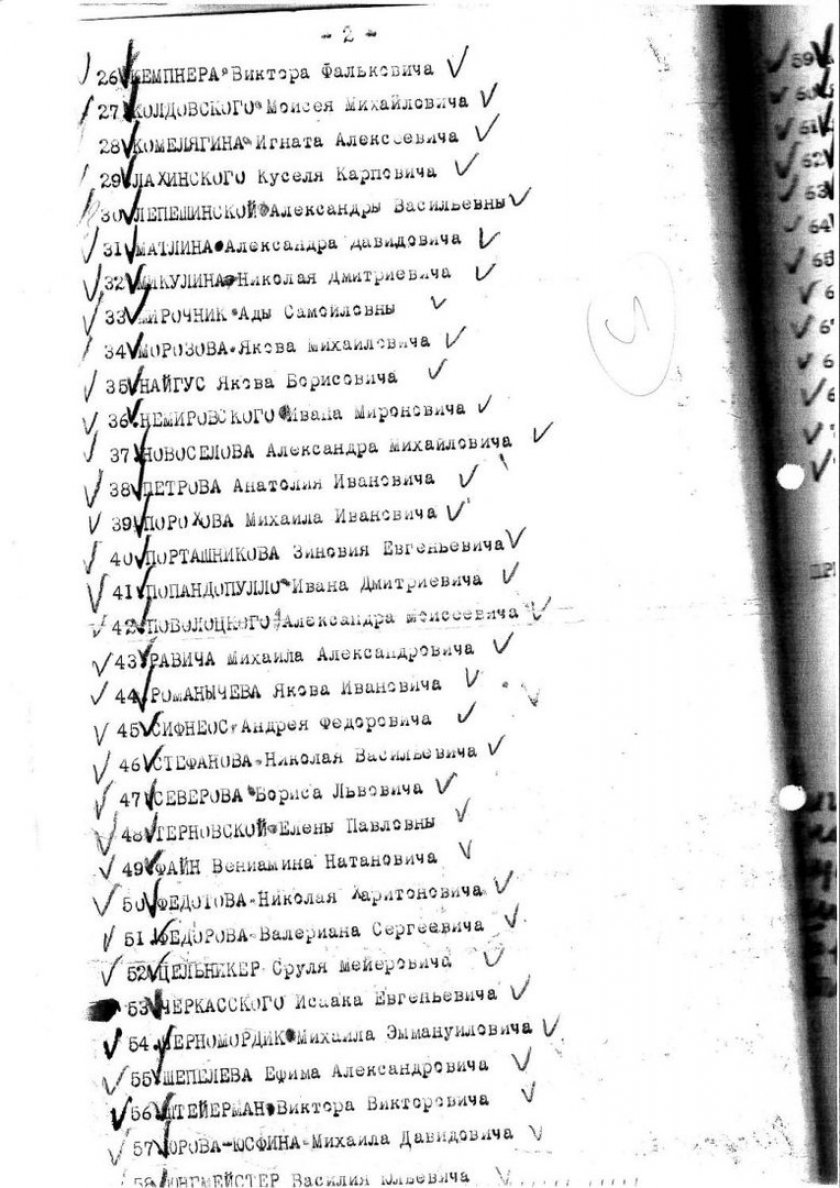 - 2 -
26. КЕМПНЕРА Виктора Фальковича
27. КОЛДОВСКОГО Моисея Михайловича
28. КОМЕЛЯГИНА Игната Алексеевича
29. ЛАХИНСКОГО Куселя Карповича
30. ЛЕПЕШИНСКОЙ Александры Васильевны
31. МАТЛИНА Александра Давидовича
32. МИКУЛИНА Николая Дмитриевича
33. МИРОЧНИК Ады Самойловны
34. МОРОЗОВА Якова Михайловича
35. НАЙГУС Якова Борисовича
36. НЕМИРОВСКОГО Ивана Мироновича
37. НОВОСЕЛОВА Александра Михайловича
38. ПЕТРОВА Анатолия Ивановича
39. ПОРОХОВА Михаила Ивановича
40. ПОРТАШНИКОВА Зиновия Евгеньевича
41. ПОПАНДОПУЛЛО Ивана Дмитриевича
42. ПОВОЛОЦКОГО Александра Моисеевича
43. РАВИЧА Михаила Александровича
44. РОМАНЫЧЕВА Якова Ивановича
45. СИФНЕОС Андрея Федоровича
46. СТЕФАНОВА Николая Васильевича
47. СЕВЕРОВА Бориса Львовича
48. ТЕРНОВСКОЙ Елены Павловны
49. ФАЙН Вениамина Натановича
50. ФЕДОТОВА Николая Харитоновича
51. ФЕДОРОВА Валериана Сергеевича
52. ЦЕЛЬНИКЕР Сруля Мейеровича
53. ЧЕРКАССКОГО Исаака Евгеньевича
54. ЧЕРНОМОРДИК Михаила Эммануиловича
55. ШЕПЕЛЕВА Ефима Александровича
56. ШТЕЙЕРМАН Виктора Викторовича
57. ЮРОВА-ЮСФИНА Михаила Давидовича
58. ЮНГМЕЙСТЕР Василия Юльевича
59
60
61
62
63
64
65